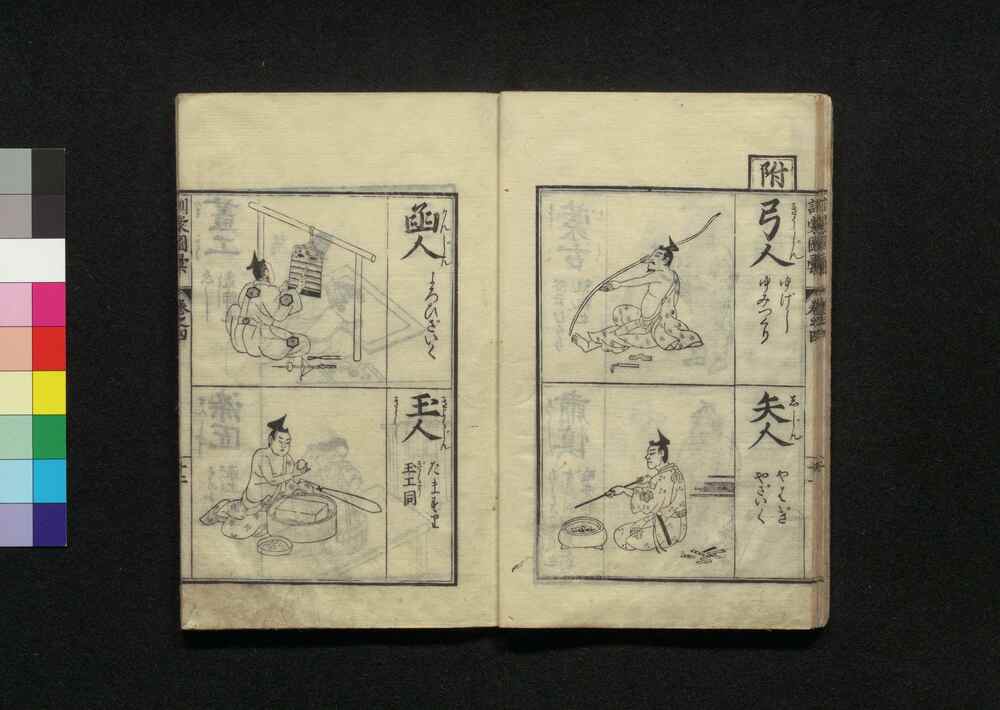 附
弓人
きうじん
ゆげし
ゆみつくり
矢人
しじん
やはぎ
やざいく
訓蒙圖彙
卷之四
函人
かんじん
よろひざいく
玉人
ぎよくじん
たますり
玉工同
訓蒙圖彙
卷之四